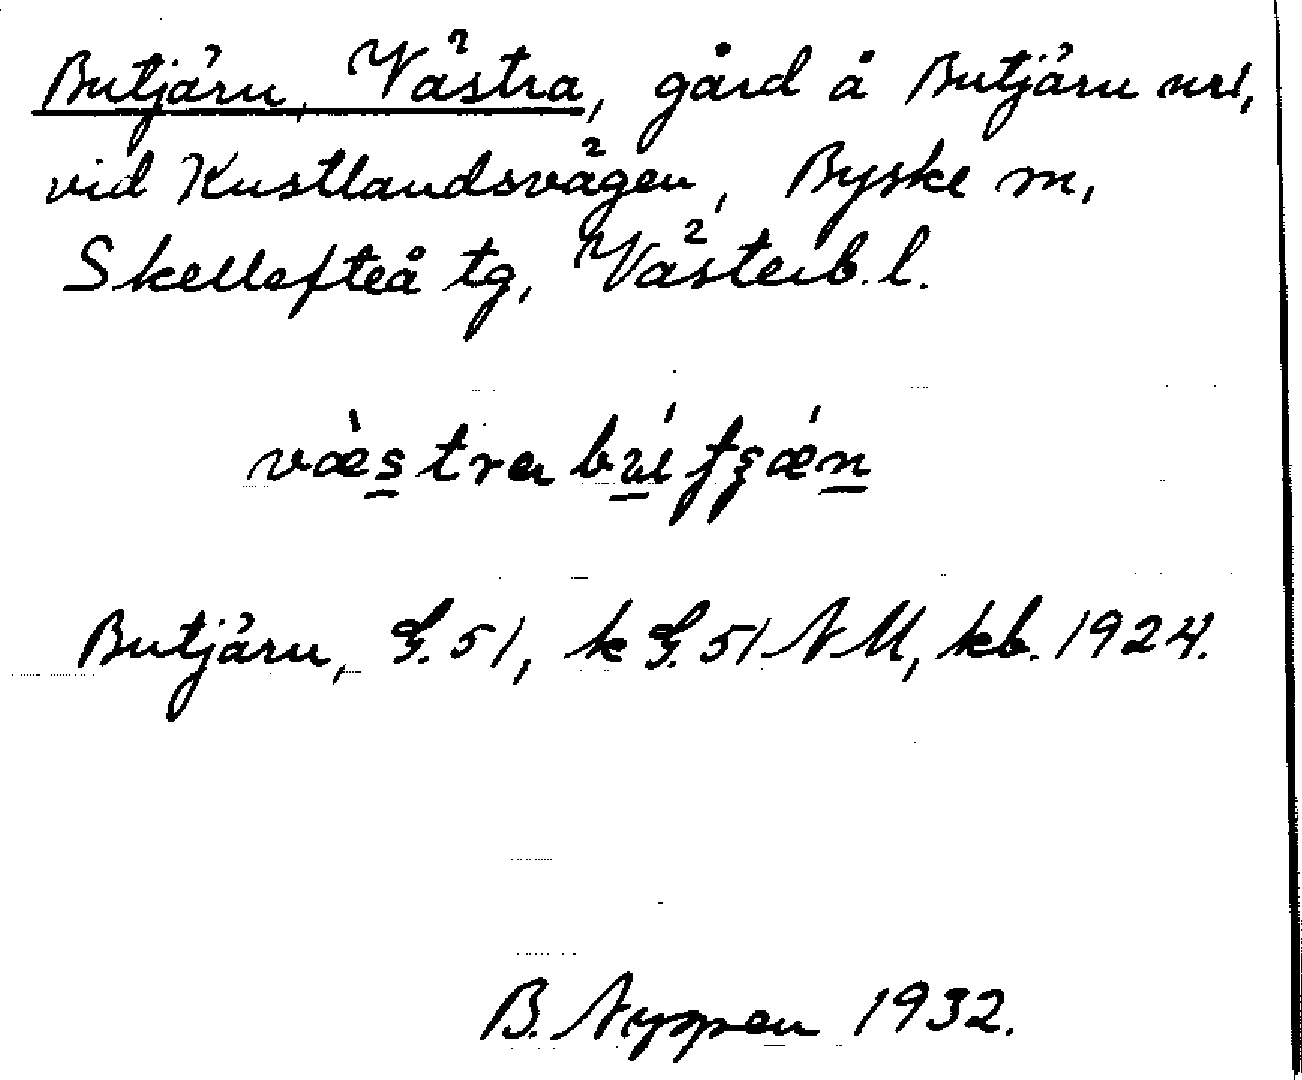 Butjärn, Västra, gård å Butjärn nr 1,
vid Kustlandsvägen, Byske sn,
Skellefteå tg, Västerb. l.
Butjärn, G. 51, k G. 51 N M, kb. 1924.
B. Nyppen 1932.